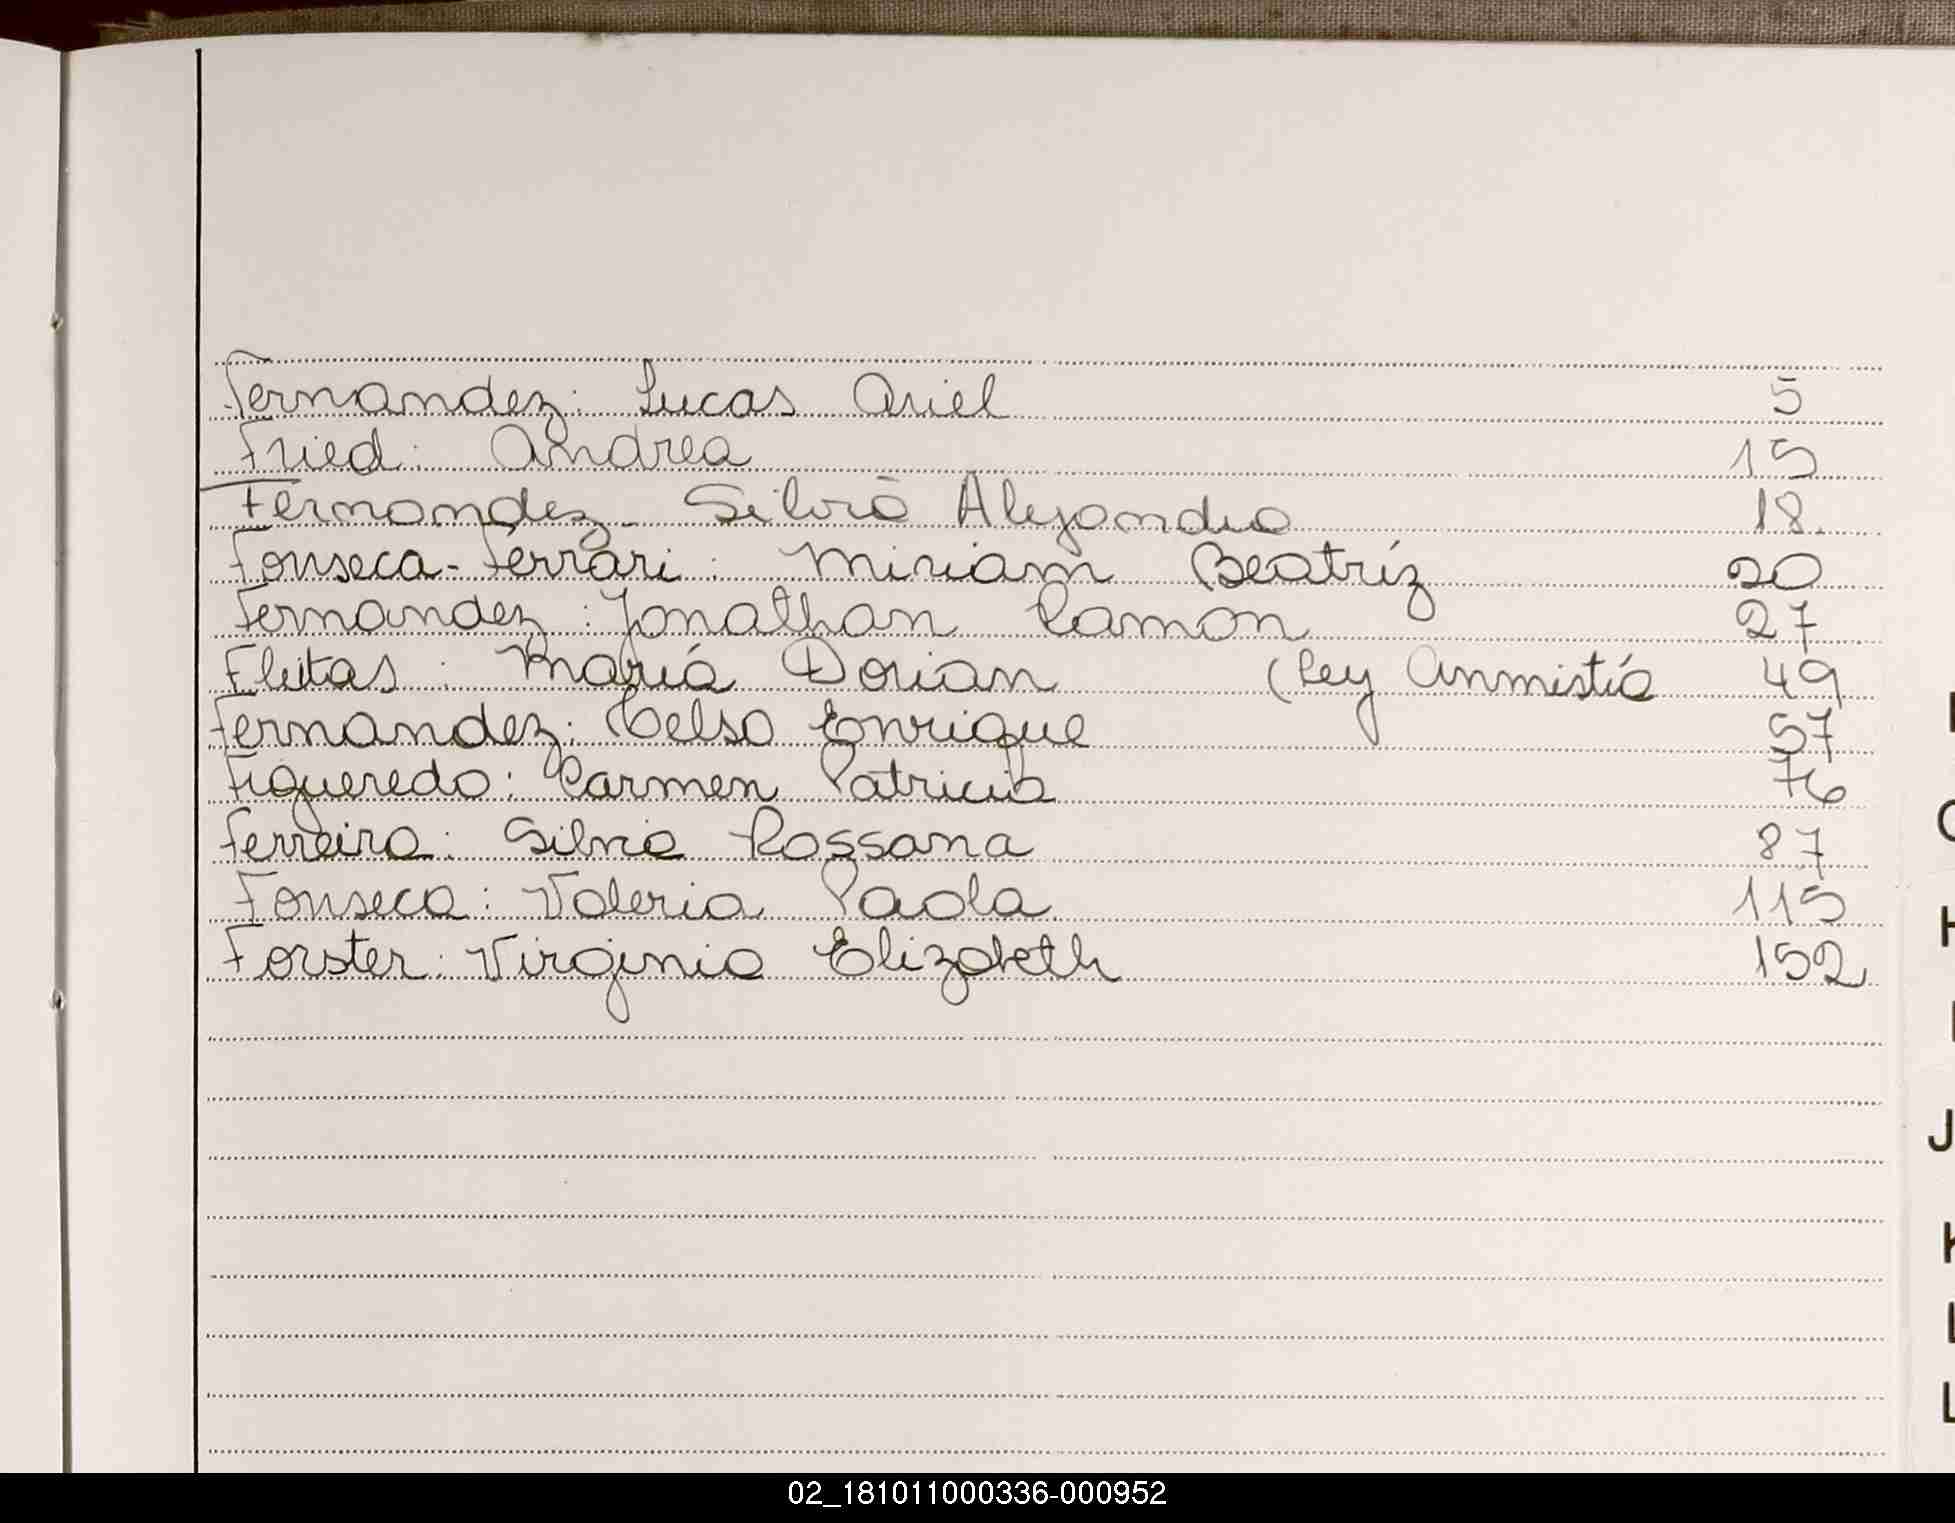 Fernandez: Lucas Ariel 5
Fried: Andrea 15
Fernandez- Silvia Alejandra 18.
Fonseca-Ferrari: Miriam Beatríz 20
Fernandez: Jonathan Ramon 27
Fleitas: María Dorian (Ley Anmistía 49
Fernandez: Celso Enrique 57
Figueredo: Carmen Patricia 76
Ferreira: Silvia Rossana 87
Fonseca: Valeria Paola 115
Forster: Virginia Elizabeth 152
H
J
K
L
02_181011000336-000952